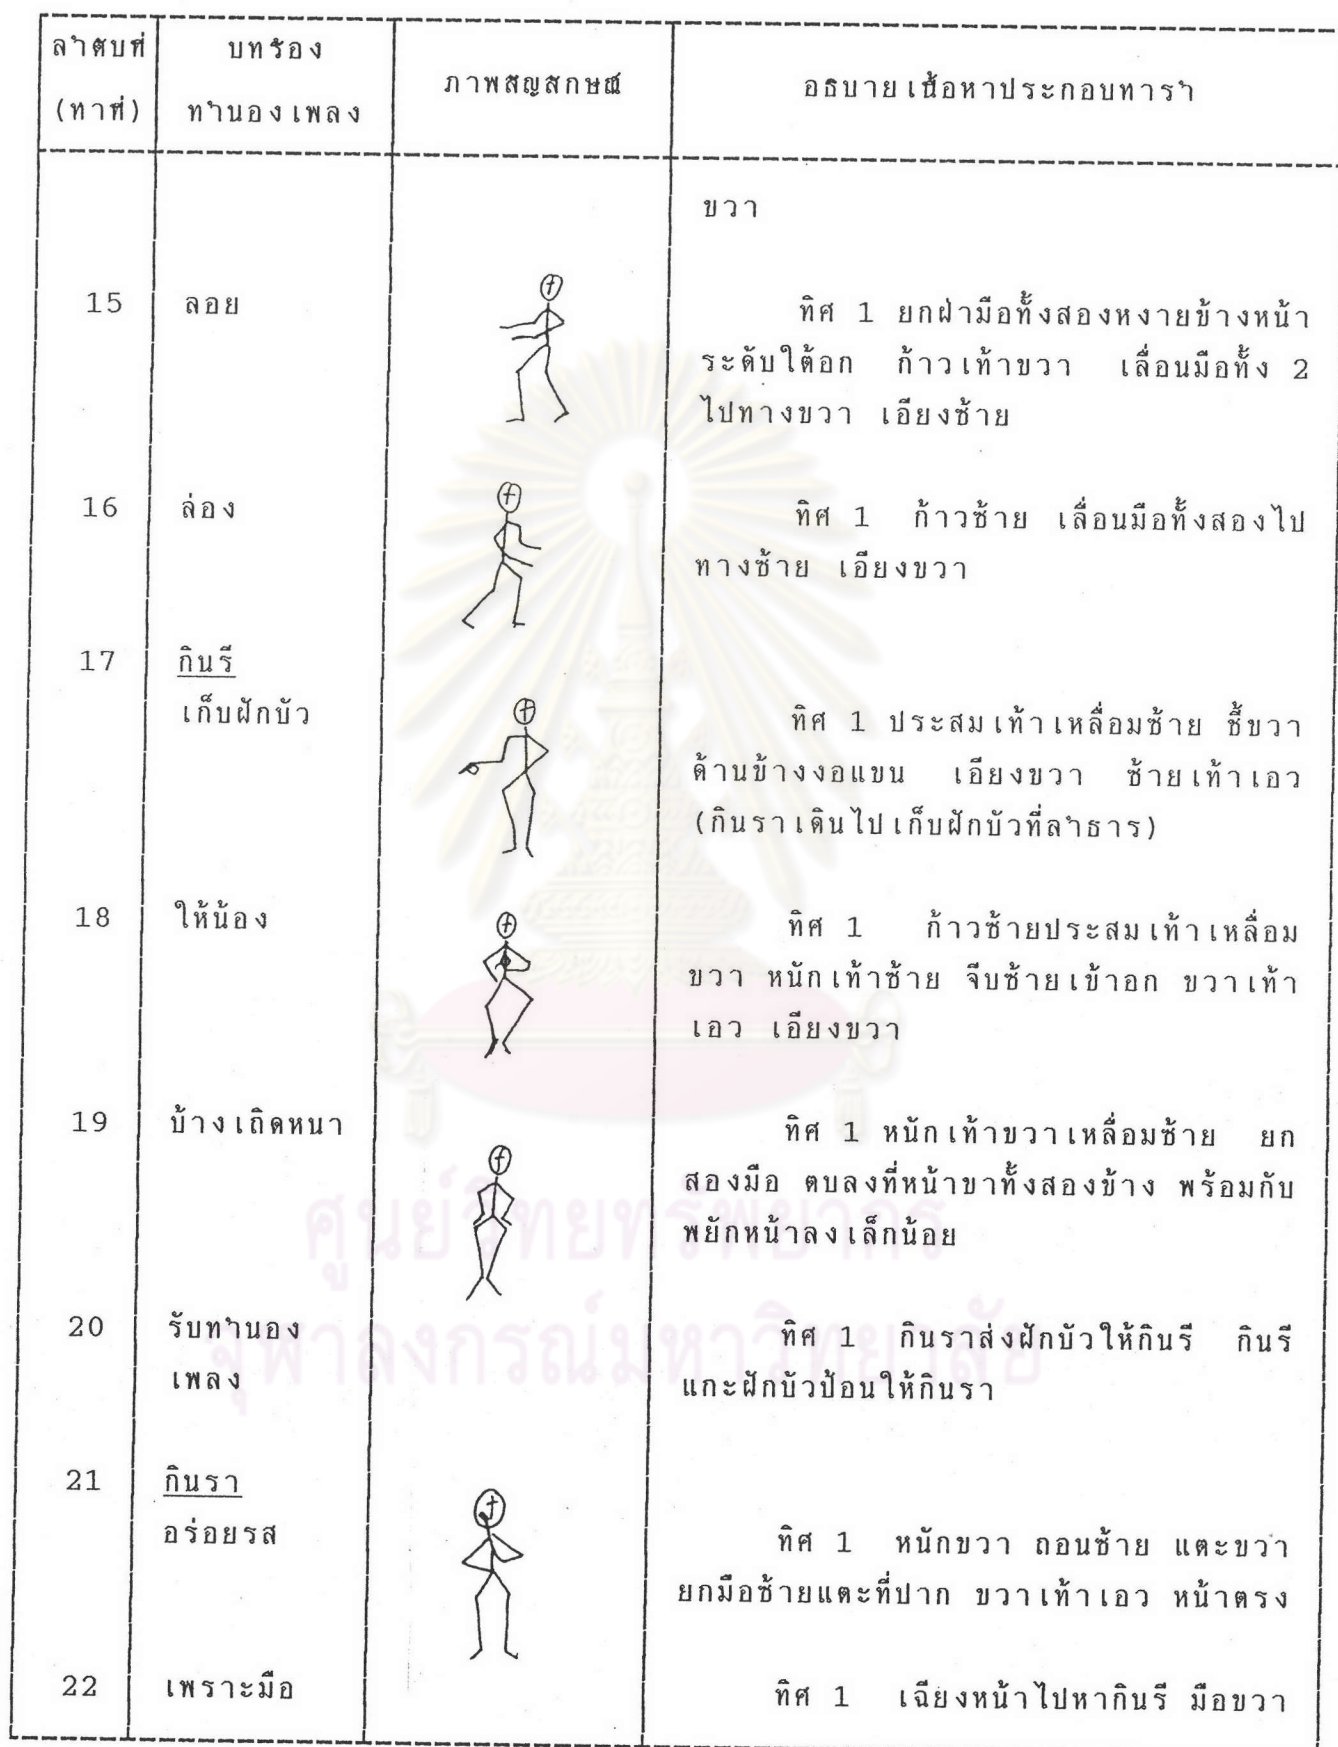 ลำดับที่ บทร้อง ภาพสัญลักษณ์ อธิบายเนื้อหาประกอบท่ารำ
(ท่าที่) ทำนองเพลง
ขวา
15 ลอย ทิศ 1 ยกฝ่ามือทั้งสองหงายข้างหน้า
ระดับใต้อก ก้าวเท้าขวา เลื่อนมือทั้ง 2
ไปทางขวา เอียงซ้าย
16 ล่อง ทิศ 1 ก้าวซ้าย เลื่อนมือทั้งสองไป
ทางซ้าย เอียงขวา
17 กินรี
เก็บฝักบัว ทิศ 1 ประสมเท้าเหลื่อมซ้าย ชี้ขวา
ด้านข้างงอแขน เอียงขวา ซ้ายเท้าเอว
(กินราเดินไปเก็บฝักบัวที่ลำธาร)
18 ให้น้อง ทิศ 1 ก้าวซ้ายประสมเท้าเหลื่อม
ขวา หนักเท้าซ้าย จีบซ้ายเข้าอก ขวาเท้า
เอว เอียงขวา
19 บ้างเถิดหนา ทิศ 1 หนักเท้าขวาเหลื่อมซ้าย ยก
สองมือ ตบลงที่หน้าขาทั้งสองข้าง พร้อมกับ
พยักหน้าลงเล็กน้อย
ศูนย์วิทยทรัพยากร
20 รับทำนอง ทิศ 1 กินราส่งฝักบัวให้กินรี กินรี
เพลง แกะฝักบัวป้อนให้กินรา
จุฬาลงกรณ์มหาวิทยาลัย
21 กินรา
อร่อยรส ทิศ 1 หนักขวา ถอนซ้าย แตะขวา
ยกมือซ้ายแตะที่ปาก ขวาเท้าเอว หน้าตรง
22 เพราะมือ ทิศ 1 เฉียงหน้าไปหากินรี มือขวา